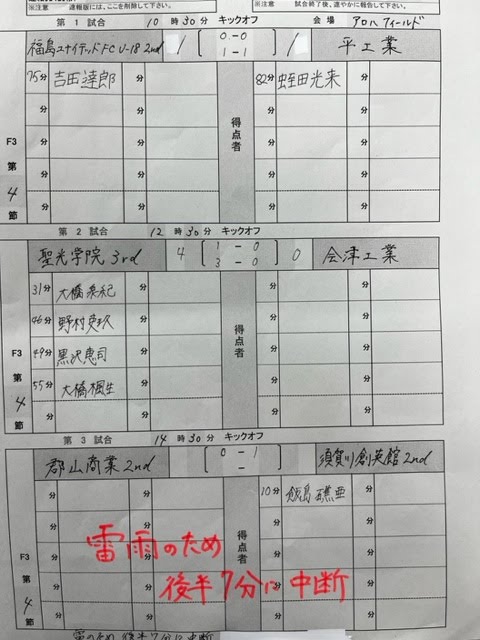 ※注意　速報版には、ここを削除してください。
※注意　試合終了後、速やかに報告して下さい。
第 1 試合 10 時 30 分 キックオフ 会場 アロハフィールド
福島ユナイテッドFC U-18 2nd 1 0-0 1-1 1 平工業
75分 吉田達郎 82分 蛭田光来
得点者
F3 第 4 節
第 2 試合 12 時 30 分 キックオフ
聖光学院 3rd 4 1-0 3-0 0 会津工業
31分 大橋
46分 野村
49分 黒沢恵司
55分 大橋楓生
得点者
F3 第 4 節
第 3 試合 14 時 30 分 キックオフ
郡山商業 2nd 0-1 - 須賀川創英館 2nd
10分 飯島 礁亜
得点者
雷雨のため
後半7分に中断
F3 第 4 節
雷のため 後半7分に中断